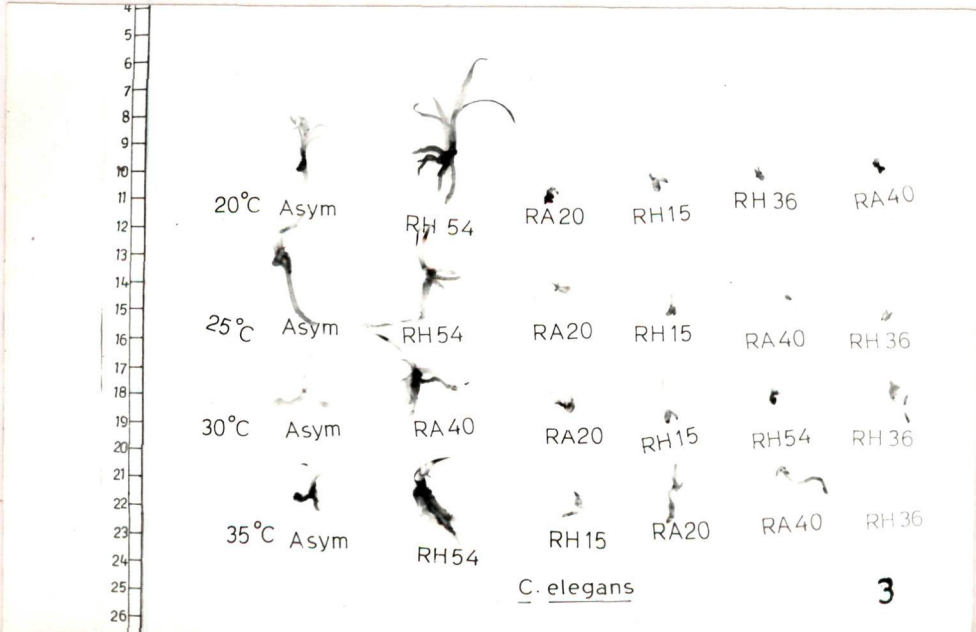 4
5
6
7
8
9
10
11
12
13
14
15
16
17
18
19
20
21
22
23
24
25
26
20°C Asym RH 54 RA20 RH15 RH 36 RA40
25°C Asym RH54 RA20 RH15 RA40 RH36
30°C Asym RA40 RA20 RH15 RH54 RH36
35°C Asym RH54 RH15 RA20 RA40 RH36
C. elegans
3